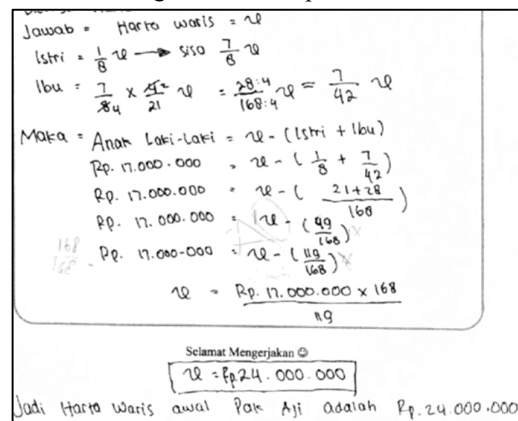 Jawab = Harta waris = x
Istri = 1/8 x → siso 7/8 x
Ibu = 7/84 x 4 2/21 x = 28:4/168:4 x = 7/42 x
Maka = Anak Laki-Laki = x - (Istri + Ibu)
Rp. 17.000.000 = x - ( 1/8 + 7/42 )
Rp. 17.000.000 = x - ( 21+28/168 )
Rp. 17.000.000 = 1x - (49/168) x
168/168 - Rp. 17.000-000 = x - (119/168) x
x = Rp. 17.000.000 x 168/119
Selamat Mengerjakan ☺
x = Rp.24.000.000
Jadi Harta Waris awal Pak Aji adalah Rp.24.000.000